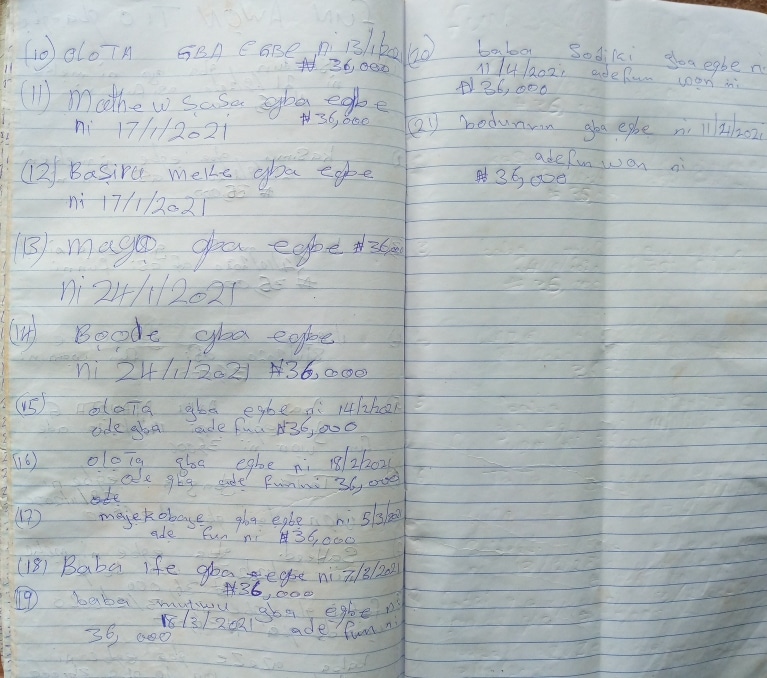 (10) OLOTA GBA EGBE ni 13/1/2021
₦ 36,000
(11) Mathew Sasa gba egbe
ni 17/1/2021 ₦36,000
(12) Baṣiru meke gba egbe
ni 17/1/2021
(13) Mago gba egbe ₦36,000
ni 24/1/2021
(14) Bọọde gba egbe
ni 24/1/2021 ₦36,000
(15) OLOTa gba egbe ni 14/2/2021
ade gba ade fun ₦36,000
(16) OLOTa gba egbe ni 18/2/2021
ade gba ade funni 36,000
(17) majekobaje gba egbe ni 5/3/2021
ade fun ni ₦36,000
(18) Baba ife gba egbe ni 7/3/2021
₦36,000
19 baba gba egbe ni
18/3/2021 ade fun ni
36,000
(20) baba Sodiki gba egbe ni
11/4/2021 adefun won ni
₦36,000
(21) bodunrin gba egbe ni 11/4/2021
adefun won ni
₦36,000